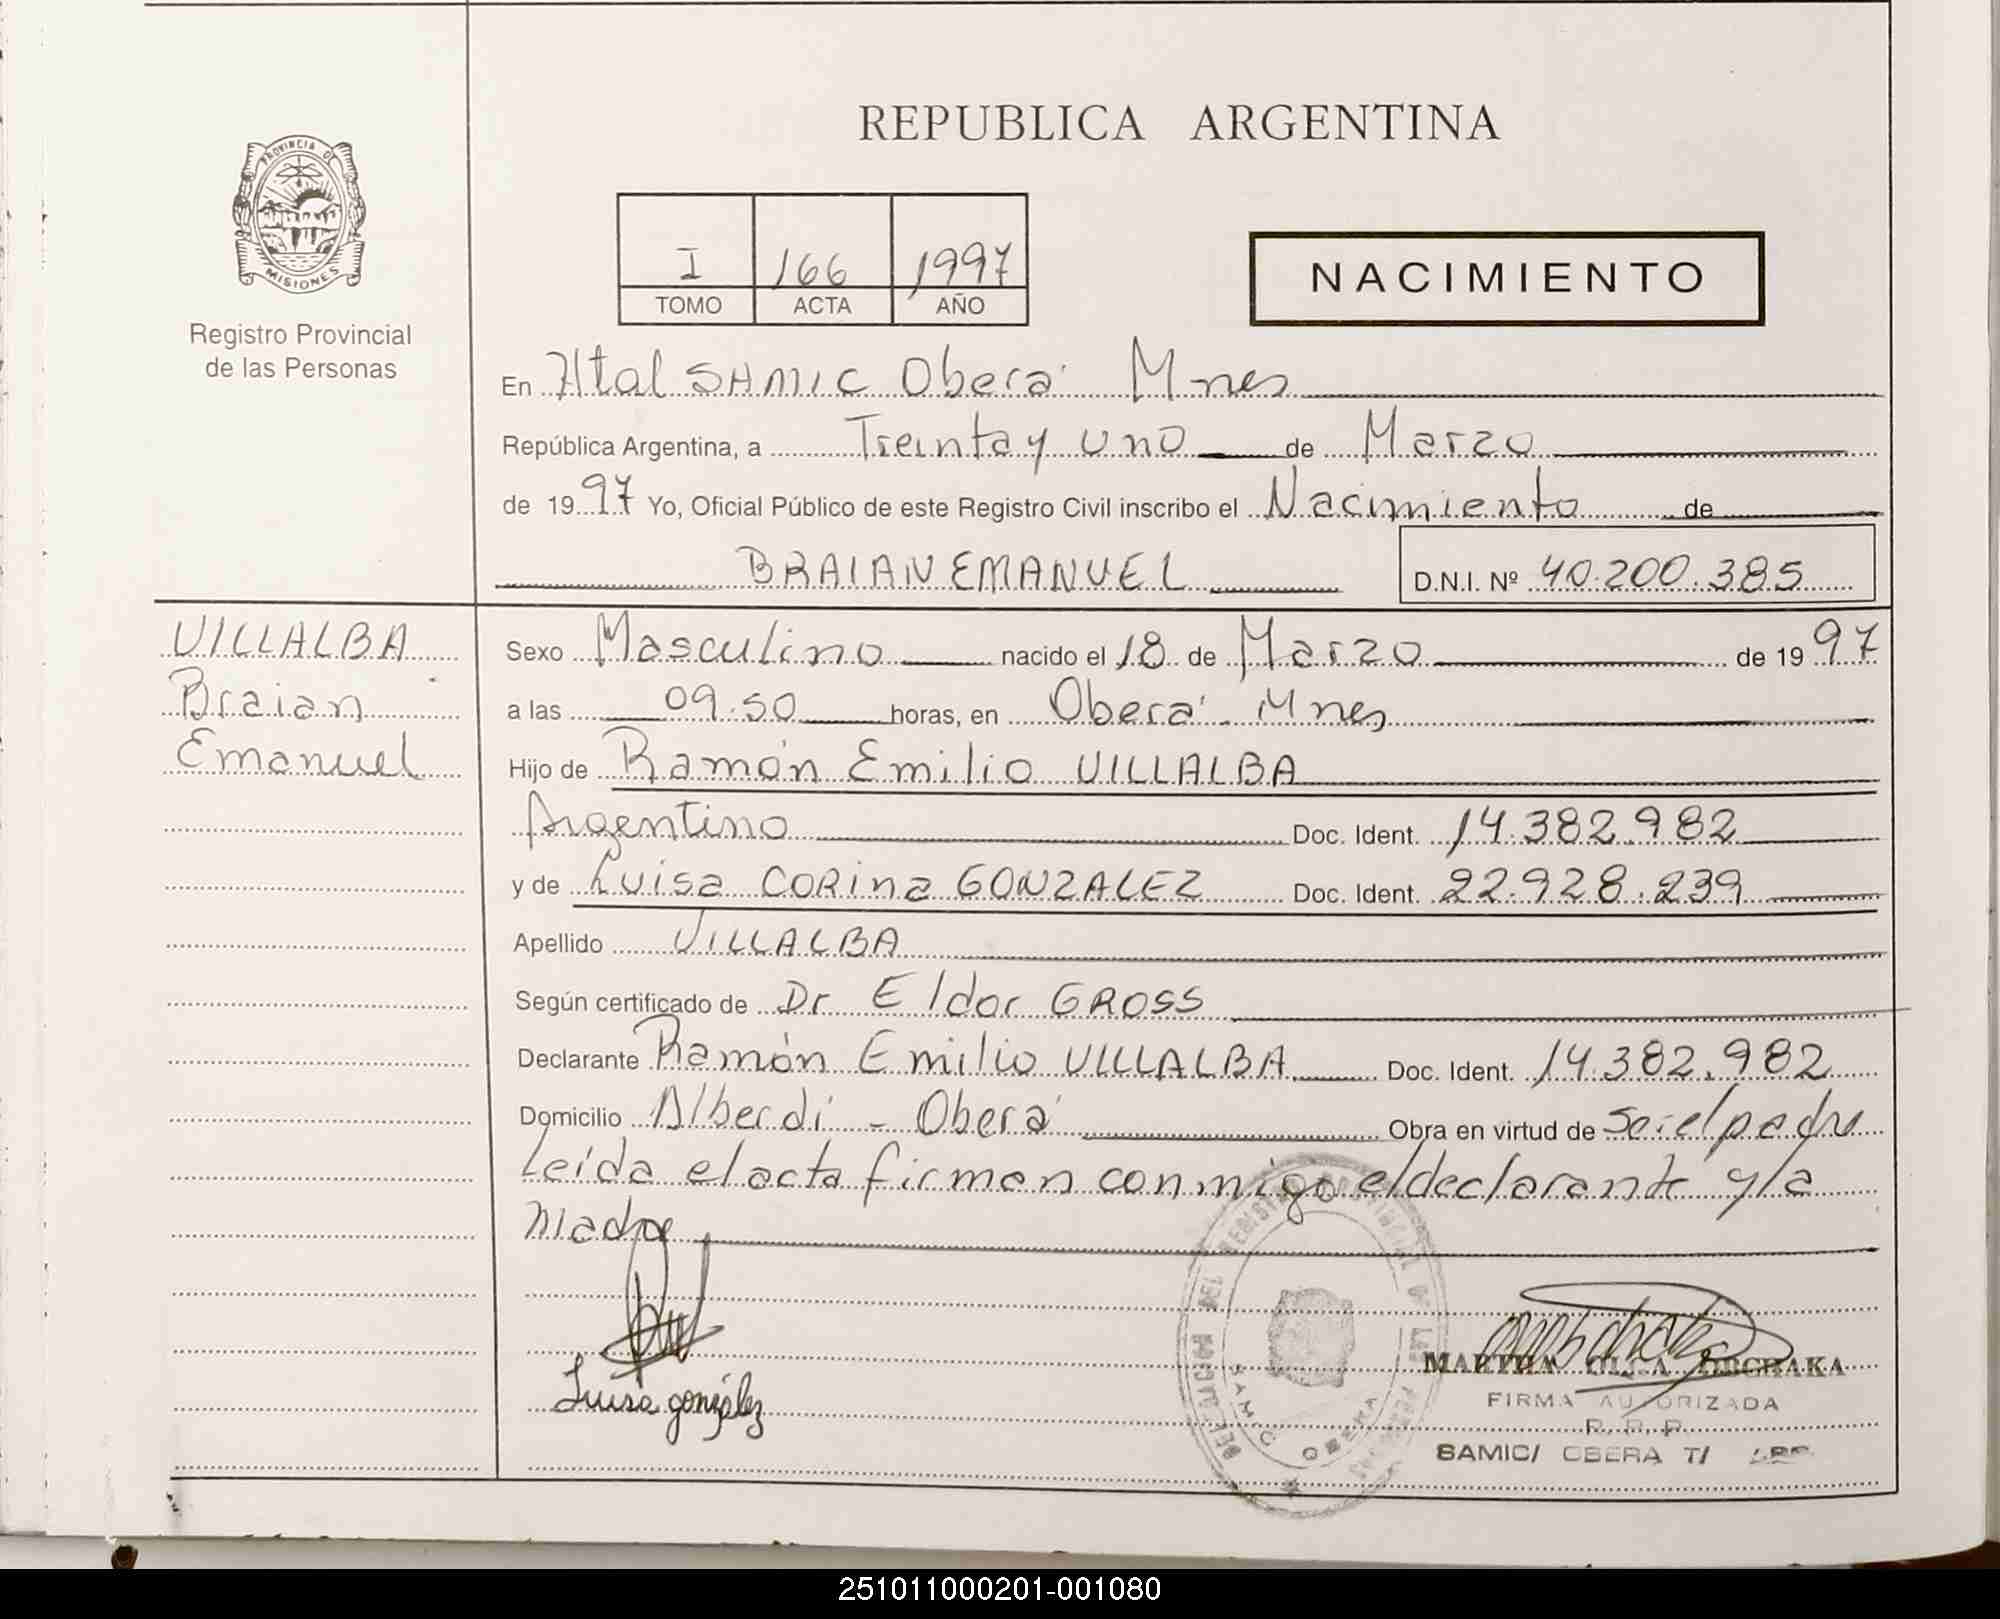 REPUBLICA ARGENTINA
PROVINCIA DE
MISIONES
Registro Provincial
de las Personas
I 166 1997
TOMO ACTA AÑO
NACIMIENTO
En Htal SAMIC Oberá Mnes
República Argentina, a Treinta y uno de Marzo
de 1997 Yo, Oficial Público de este Registro Civil inscribo el Nacimiento de
BRAIAN EMANUEL D.N.I. Nº 40.200.385
VILLALBA
Braian
Emanuel
Sexo Masculino nacido el 18 de Marzo de 1997
a las 09.50 horas, en Oberá - Mnes
Hijo de Ramón Emilio VILLALBA
Argentino Doc. Ident. 14.382.982
y de Luisa CORina GONZALEZ Doc. Ident. 22.928.239
Apellido VILLALBA
Según certificado de Dr Eldor GROSS
Declarante Ramón Emilio VILLALBA Doc. Ident. 14.382.982
Domicilio Alberdi - Oberá Obra en virtud de Ser el padre
Leída el acta firman conmigo el declarante y la
Madre
Luisa gonzález
MARTHA OLGA
FIRMA AUTORIZADA
R. P. P.
SAMIC/ OBERA T/
SAMIC OBERA
251011000201-001080